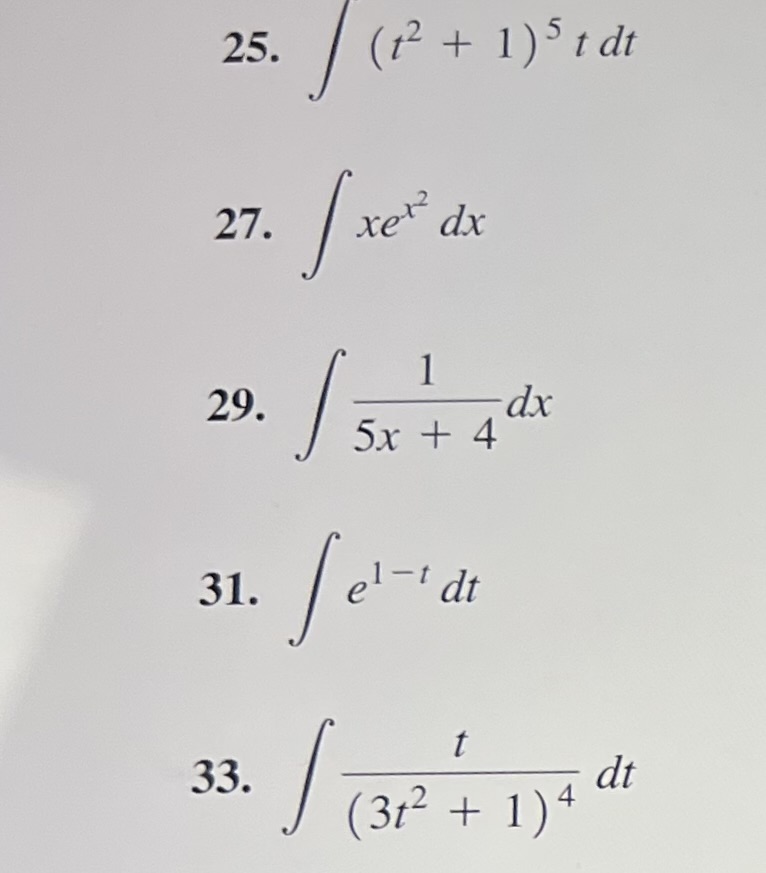 25. ∫ (t² + 1)⁵ t dt
27. ∫ xe^{x²} dx
29. ∫ \frac{1}{5x + 4} dx
31. ∫ e^{1−t} dt
33. ∫ \frac{t}{(3t² + 1)⁴} dt